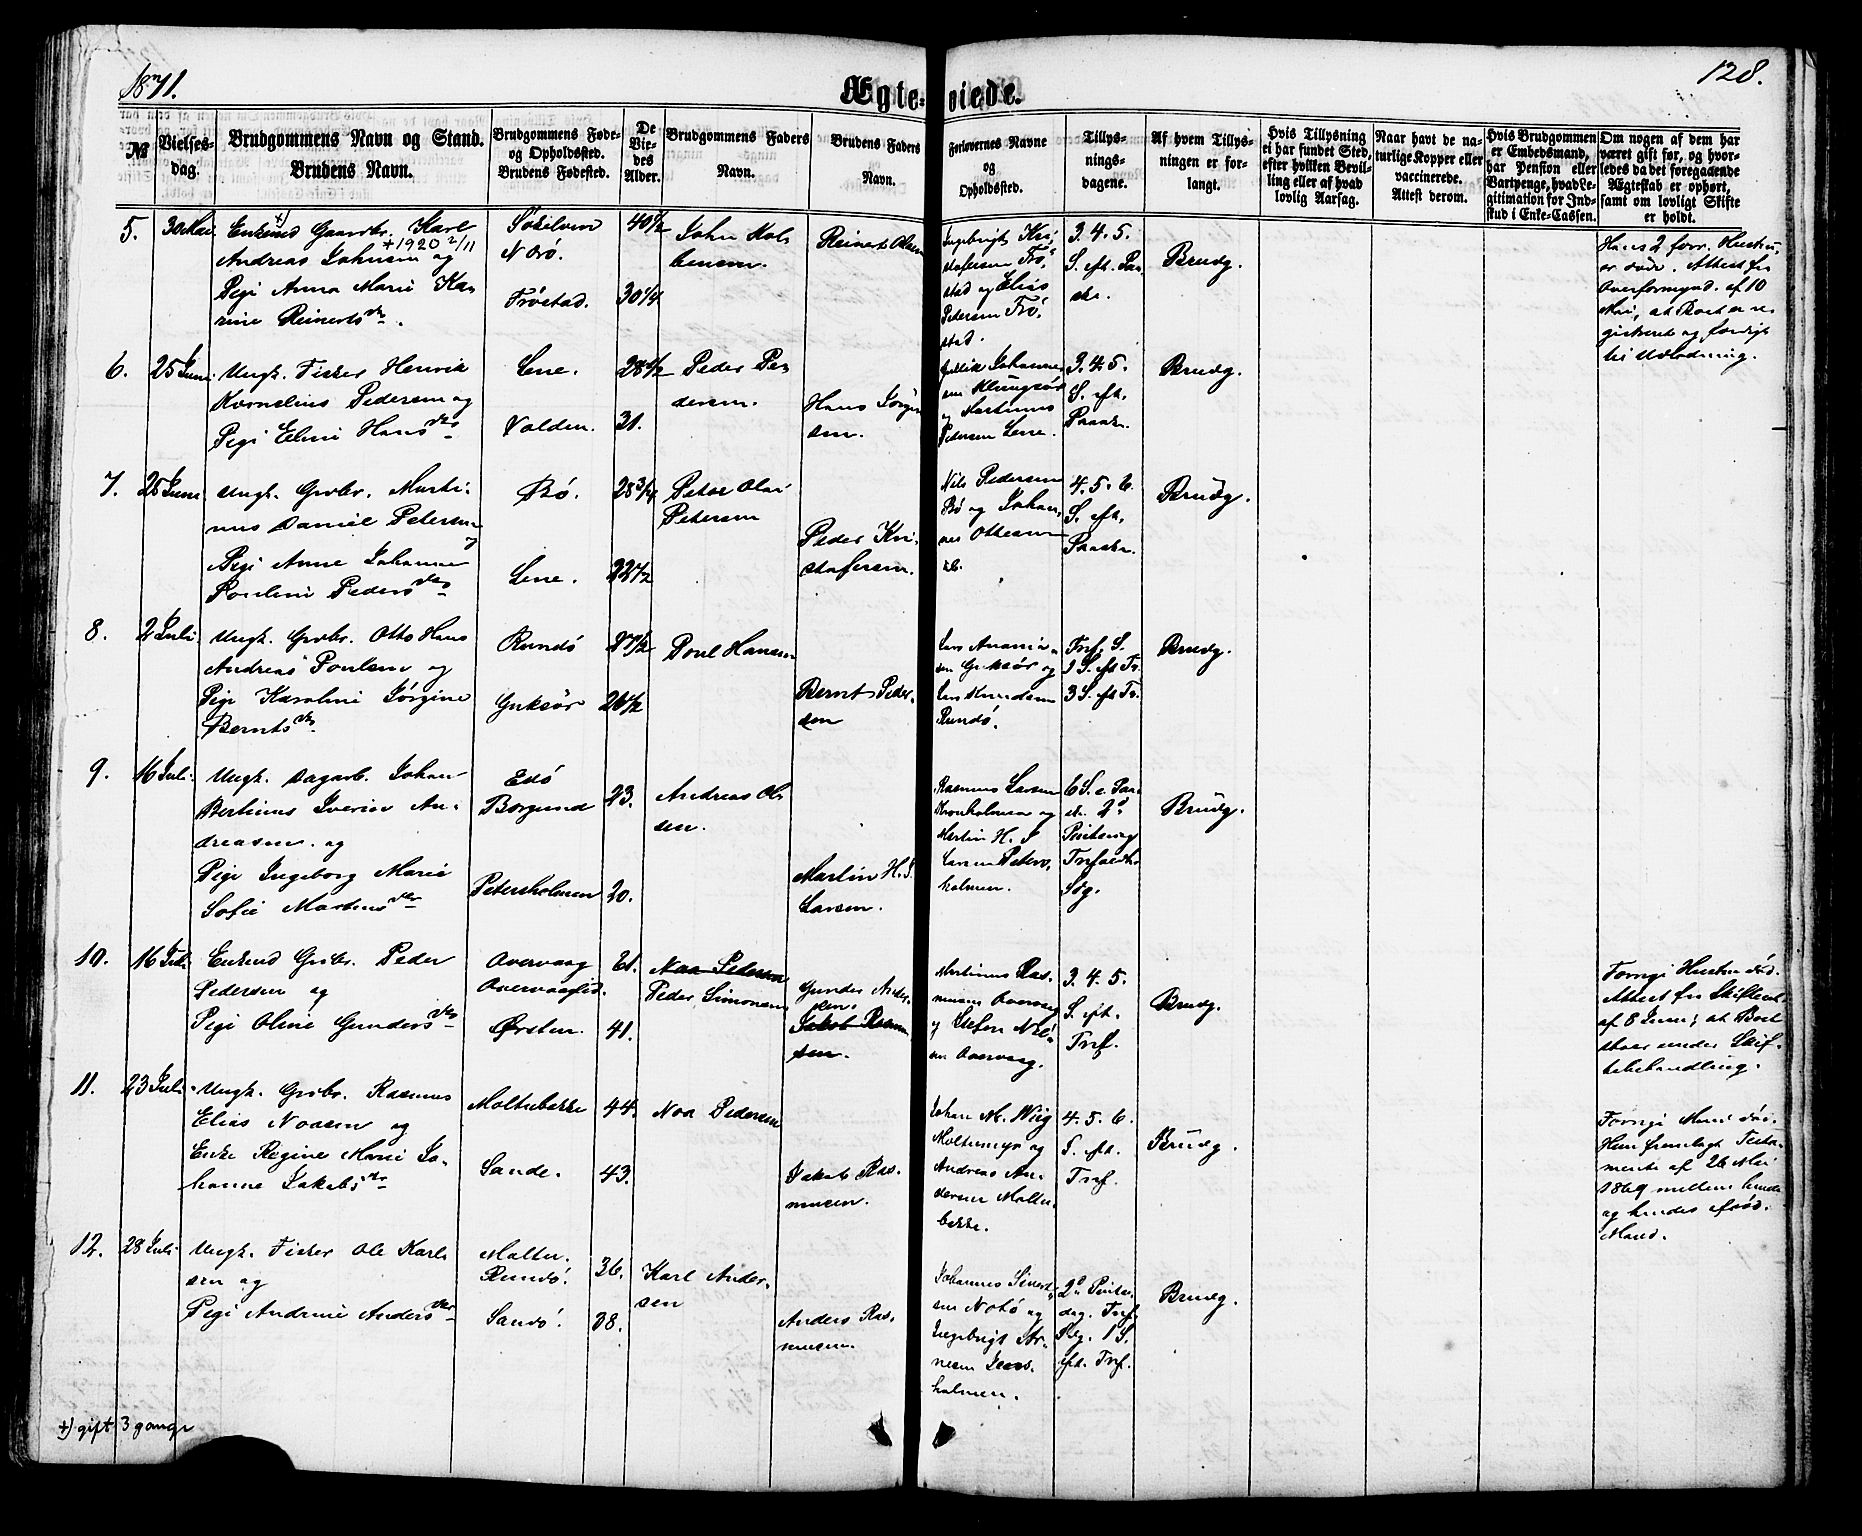 1871.
Ægteviede.
128.
№
Vielses-
dag.
Brudgommens Navn og Stand.
Brudens Navn.
Brudgommens Føde-
og Opholdssted.
Brudens Fødested.
De
Vie-
des
Alder.
Brudgommens Faders
Navn.
Brudens Faders
Navn.
Forlovernes Navne
og
Opholdssted.
Tillys-
nings-
dagene.
Af hvem Tillys-
ningen er for-
langt.
Hvis Tillysning
ei har fundet Sted,
efter hvilken Bevil-
ling eller af hvad
lovlig Aarsag.
Naar havt de na-
turlige Kopper eller
vaccinerede.
Attest derom.
Hvis Brudgommen
er Embedsmand,
har Pension eller
Vartpenge, hvad Le-
gitimation for Ind-
skud i Enke-Cassen.
Om nogen af dem har
været gift før, og hvor-
ledes da det foregaaende
Ægteskab er ophørt,
samt om lovligt Skifte
er holdt.
5.
30 Mai
Enkemd Gaardbr. Karl
+1920 2/11
Andreas Johnsen og
Pigi Anna Marie Ka-
rine Reinertsdtr.
NØrø.
Frøstad.
40 1/2
30 1/4
John Kol-
bensen.
Reinert Olsen
Ingebrigt Kri-
stofersen Frø-
stad og Elias
Pedersen Frø-
stad.
3. 4. 5.
S. eft. Paa-
ske.
Brudg.
Hans 2 forr. Hustru
er døde. Attest fra
Overformynd. af 10
Mai, at Boet er re-
gistreret og færdigt
til Udlodning.
6.
25 Juni
Ungk. Fisker Henrik
Kornelius Pedersen og
Pigi Eline Hansdtr
Lene.
Volden.
28 1/2
31.
Peder Pe-
dersen.
Hans Jørgen-
sen.
Johannes-
sen Klungsør
og Martinus
Pedersen Lene.
3. 4. 5.
S. eft.
Paaske.
Brudg.
7.
25 Juni
Ungk. Grdbr. Marti-
nus Daniel Petersen
Pigi Anne Johanne
Pouline Pedersdtr
Bø.
Lene.
28 3/4
22 1/2
Peter Olai
Petersen
Peder Kri-
stofersen.
Nils Pedersen
Bø og Johan-
nes Ottesen
4. 5. 6.
S. eft.
Paaske.
Brudg.
8.
2 Juli.
Ungk. Grdbr. Otto Hans
Andreas Poulsen og
Pigi Karoline Jørgine
Berntsdtr.
Rundø
Gjuksør
27 1/2
26 1/2
Poul Hansen
Bernt Peder-
sen
Lars Anania-
sen Gjuksør og
Lars Knudsen
Rundø.
Tref. S.
1 S. eft Tr.
3 S. eft Tr.
Brudg.
9.
16 Juli.
Ungk. Dagarb. Johan
Bertinus Iverin An-
dreasen. og
Pigi Ingeborg Marie
Sofie Martinsdtr
Edø
Borgund
Petersholmen
23.
20.
Andreas Ol-
sen.
Martin H. S.
Larsen.
Rasmus Larsen
Kronholmen og
Martin H. S
Larsen Peters-
holmen.
6 S. e Paa-
ske. 2d
Pintsedag
Trefoldh.
Sdg.
Brudg.
10.
16 Juli
Enkemd Grdbr. Peder
Pedersen og
Pigi Oline Gundersdtr
Overvaag
Overvaagseid.
Ørsten.
61.
41.
Noa Pedersen
Peder Simonsen
Gunder Ander-
sen.
Jakob Rasmu-
sen.
Martinus Ras-
musen Overvaag
og Stefen Nil-
sen Overvaag.
3. 4. 5.
S. eft.
Tref.
Brudg.
Forrige Hustru død.
Attest fra Skifteret
af 8 Juni, at Boet
staar under Skif-
tebehandling.
11.
23 Juli
Ungk. Grdbr. Rasmus
Elias Noasen og
Enke Regine Marie Jo-
hanne Jakobsdtr
Moltubakke
Sande.
44.
43.
Noa Pedersen
Jakob Ras-
musen.
Johan M. Wiig
Moltumyr og
Andreas An-
dersen Moltu-
bakke.
4. 5. 6.
S. eft.
Tref.
Brudg.
Forrige Mand død.
Hun fremlagt Testa-
mente af 26 Mai
1869 mellem hende
og hendes afdød.
Mand.
12.
28 Juli
Ungk. Fisker Ole Karl-
sen og
Pigi Andrine Andersdtr
Moltu.
Rundø.
Sandø.
36.
38.
Karl Ander-
sen
Anders Ras-
musen.
Johannes Sivert-
sen Notø og
Ingebrigt Ar-
nesen
holmen.
2d Pintse-
dag. Tref.
1 S.
eft. Tref.
Brudg.
+) gift 3 gange